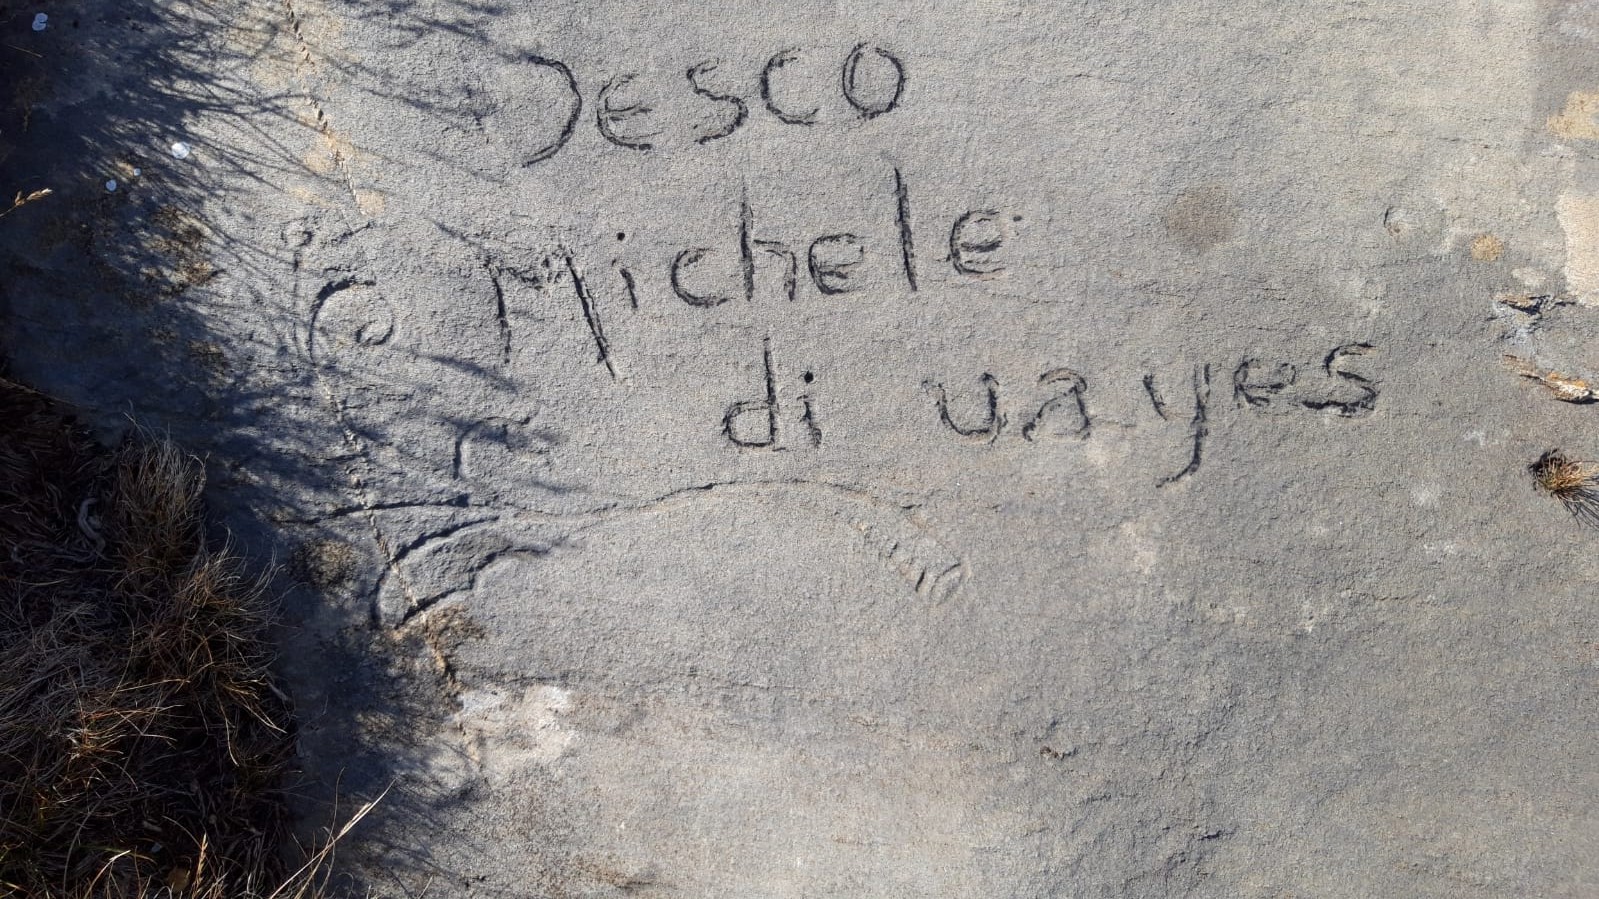 DESCO
Michele
di uayes